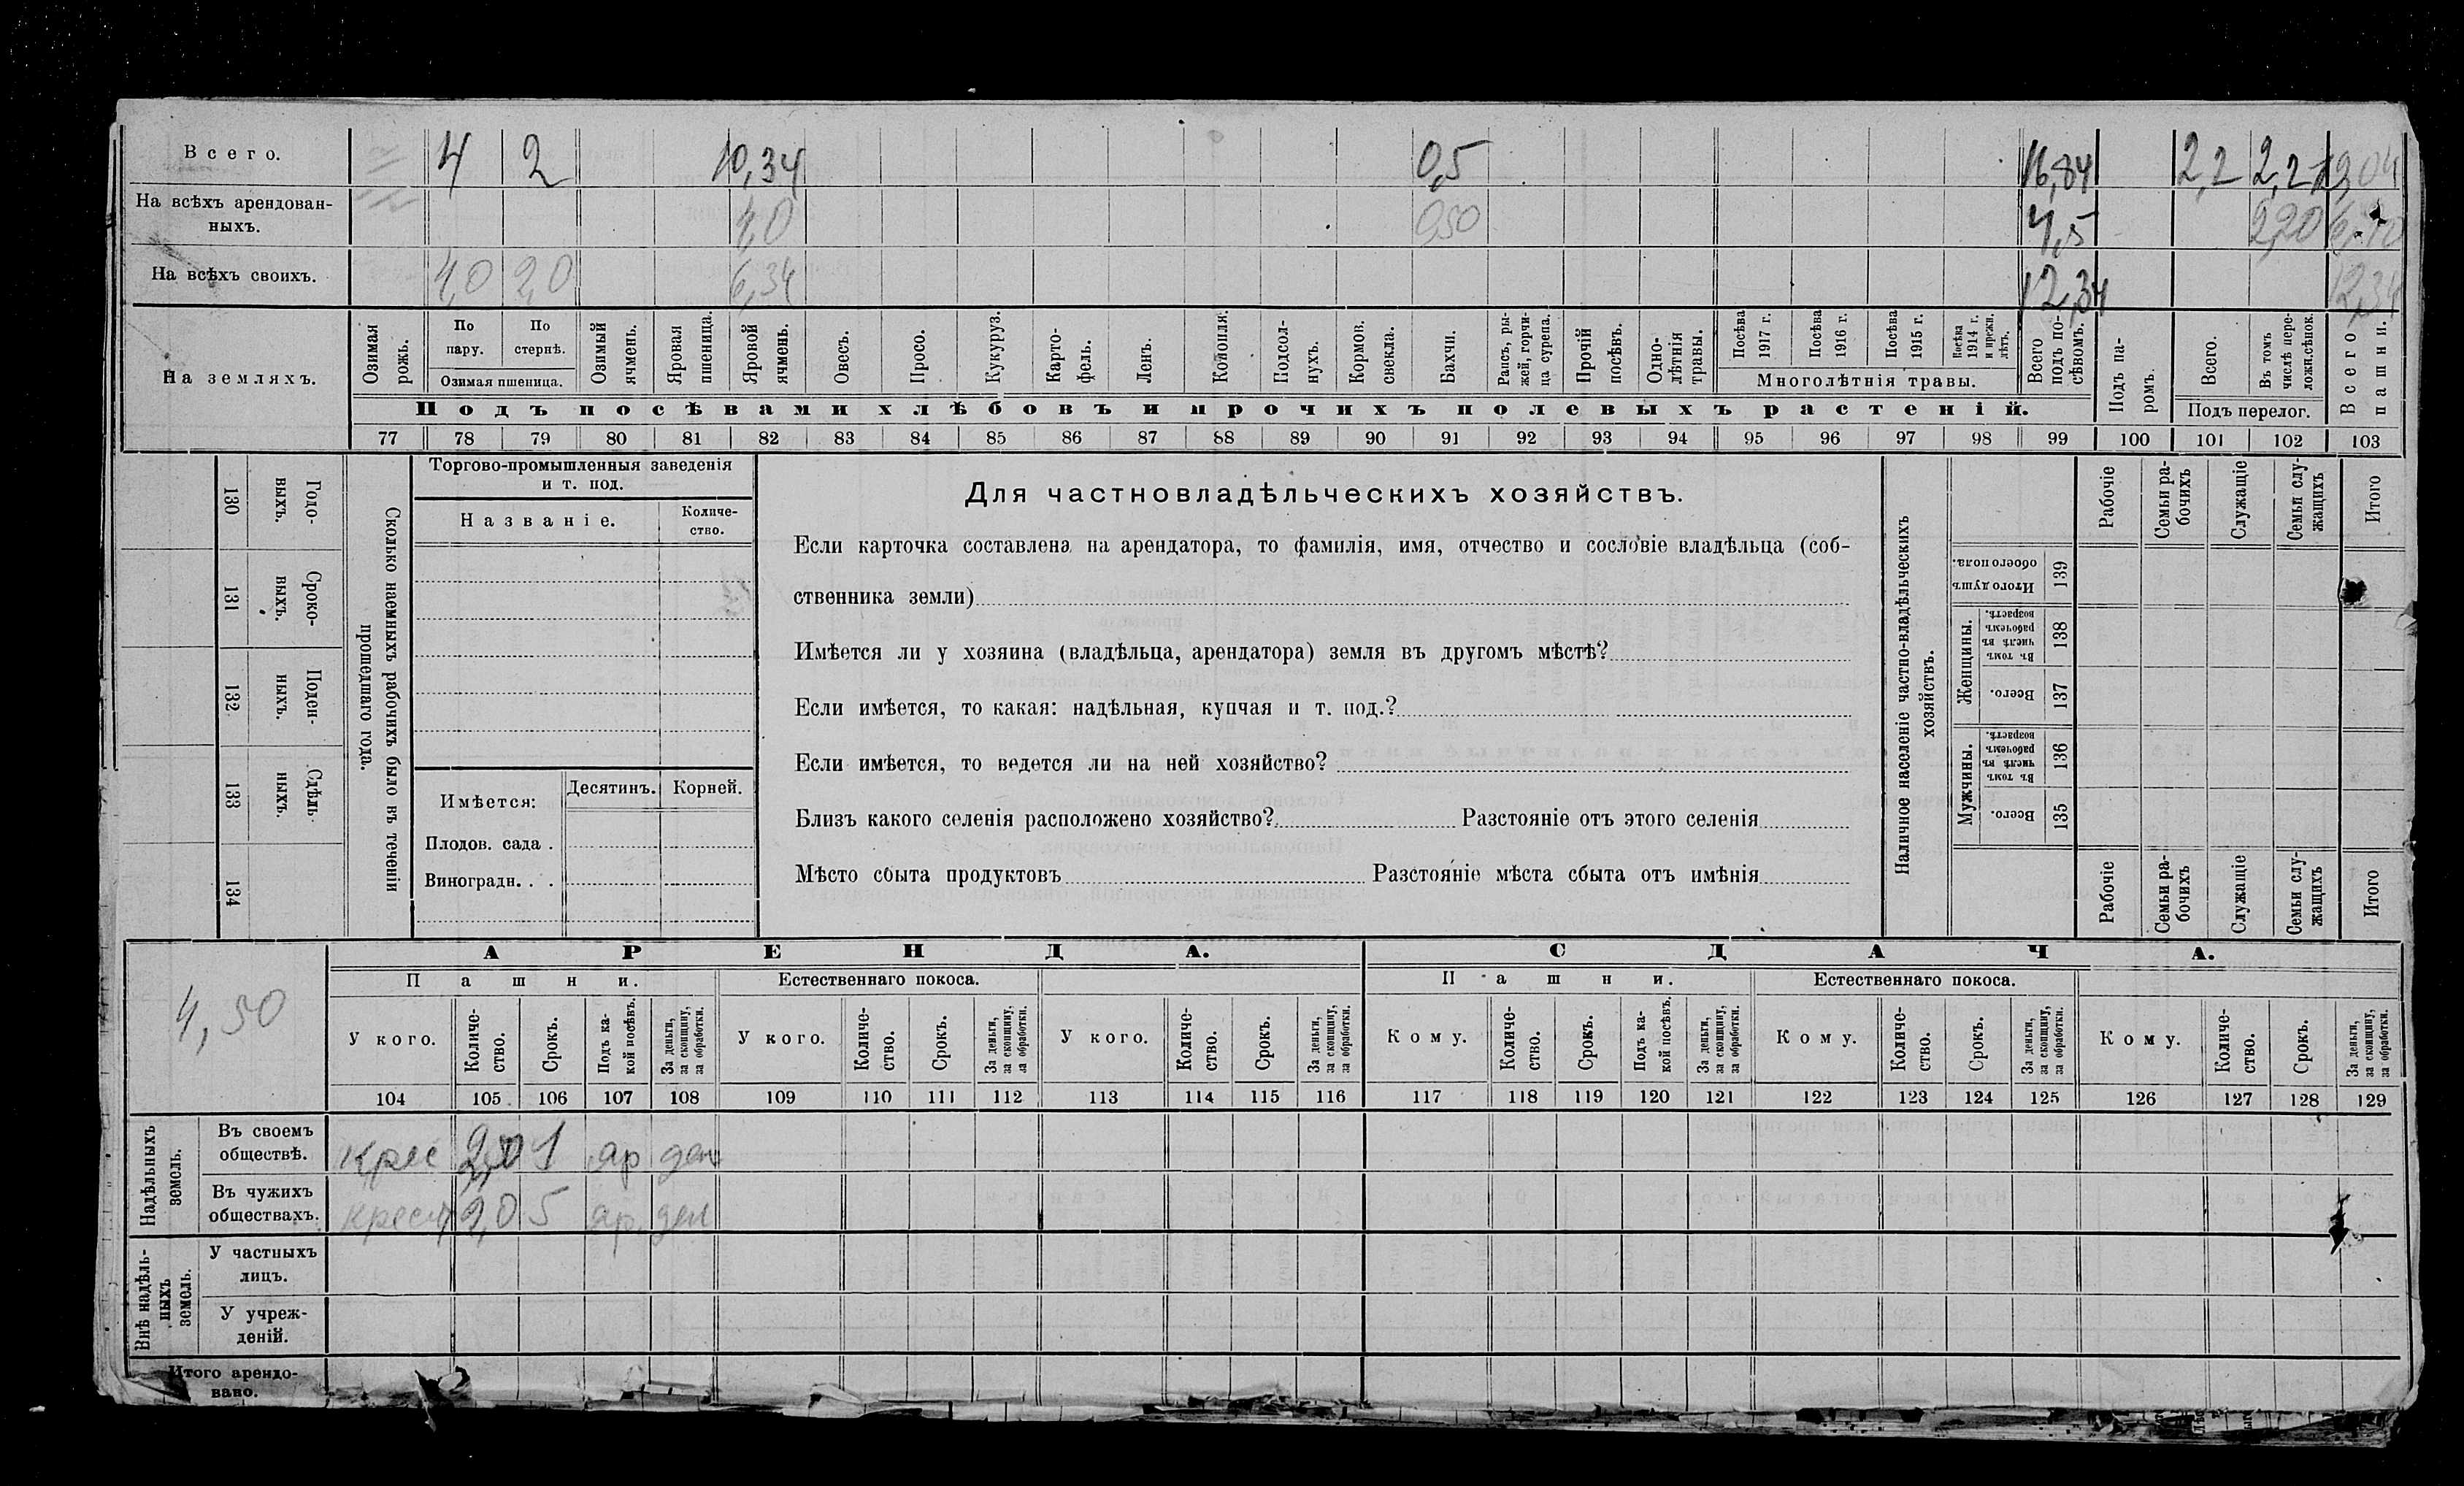 Всего. 4 2 10,34 0,5 16,84 2,2 2,2
На всѣхъ арендован-
ныхъ. 4,0 0,50 4,5 2,20
На всѣхъ своихъ. 4,0 2,0 6,34 12,34 12,34
На земляхъ.
Озимая рожь.
По пару.
По стернѣ.
Озимая пшеница.
Озимый ячмень.
Яровая пшеница.
Яровой ячмень.
Овесъ.
Просо.
Кукуруз.
Карто-
фель.
Ленъ.
Конопля.
Подсол-
нухъ.
Кормов. свекла.
Бахчи.
Рапсъ, ры-
жей, горчи-
ца сурепа.
Прочій посѣвъ.
Одно-
лѣтнія травы.
Посѣва 1917 г.
Посѣва 1916 г.
Посѣва 1915 г.
Посѣва 1914 г. и прежн. лѣтъ.
Многолѣтнія травы.
Всего подъ по-
сѣвомъ.
Подъ посѣвами хлѣбовъ и прочихъ полевыхъ растеній.
Подъ па-
ромъ.
Всего.
Въ томъ числѣ пере-
ложн.сѣнок.
Подъ перелог.
Всего пашни.
77 78 79 80 81 82 83 84 85 86 87 88 89 90 91 92 93 94 95 96 97 98 99 100 101 102 103
130 Годо-
выхъ.
131 Сроко-
выхъ.
132 Поден-
ныхъ.
133 Сдѣль-
ныхъ.
134
Сколько наемныхъ рабочихъ было въ теченіи
прошедшаго года.
Торгово-промышленныя заведенія
и т. под.
Названіе.
Количе-
ство.
Имѣется:
Десятинъ.
Корней.
Плодов. сада .
Виноградн. . .
Для частновладѣльческихъ хозяйствъ.
Если карточка составлена на арендатора, то фамилія, имя, отчество и сословіе владѣльца (соб-
ственника земли)
Имѣется ли у хозяина (владѣльца, арендатора) земля въ другомъ мѣстѣ?
Если имѣется, то какая: надѣльная, купчая и т. под.?
Если имѣется, то ведется ли на ней хозяйство?
Близъ какого селенія расположено хозяйство? Разстояніе отъ этого селенія
Мѣсто сбыта продуктовъ Разстояніе мѣста сбыта отъ имѣнія
Наличное населеніе частно-владѣльческихъ
хозяйствъ.
Рабочіе
Семьи ра-
бочихъ
Служащіе
Семьи слу-
жащихъ
Итого
Итого душъ обоего пола. 139
Женщины.
Въ томъ числѣ въ рабочемъ возрастѣ. 138
Всего. 137
Мужчины.
Въ томъ числѣ въ рабочемъ возрастѣ. 136
Всего. 135
Рабочіе
Семьи ра-
бочихъ
Служащіе
Семьи слу-
жащихъ
Итого
4,50
АРЕНДА.
СДАЧА.
Пашни.
Естественнаго покоса.
Пашни.
Естественнаго покоса.
У кого.
Количе-
ство.
Срокъ.
Подъ ка-
кой посѣвъ.
За деньги,
за скопщину,
за обработки.
У кого.
Количе-
ство.
Срокъ.
За деньги,
за скопщину,
за обработки.
У кого.
Количе-
ство.
Срокъ.
За деньги,
за скопщину,
за обработки.
Кому.
Количе-
ство.
Срокъ.
Подъ ка-
кой посѣвъ.
За деньги,
за скопщину,
за обработки.
Кому.
Количе-
ство.
Срокъ.
За деньги,
за скопщину,
за обработки.
Кому.
Количе-
ство.
Срокъ.
За деньги,
за скопщину,
за обработки.
104 105 106 107 108 109 110 111 112 113 114 115 116 117 118 119 120 121 122 123 124 125 126 127 128 129
Надѣльныхъ
земель.
Въ своемъ
обществѣ. Крес 1 яр ден
Въ чужихъ
обществахъ. Крест 2,0 5 яр. ден
Внѣ надѣль-
ныхъ
земель.
У частныхъ
лицъ.
У учреж-
деній.
Итого арендо-
вано.